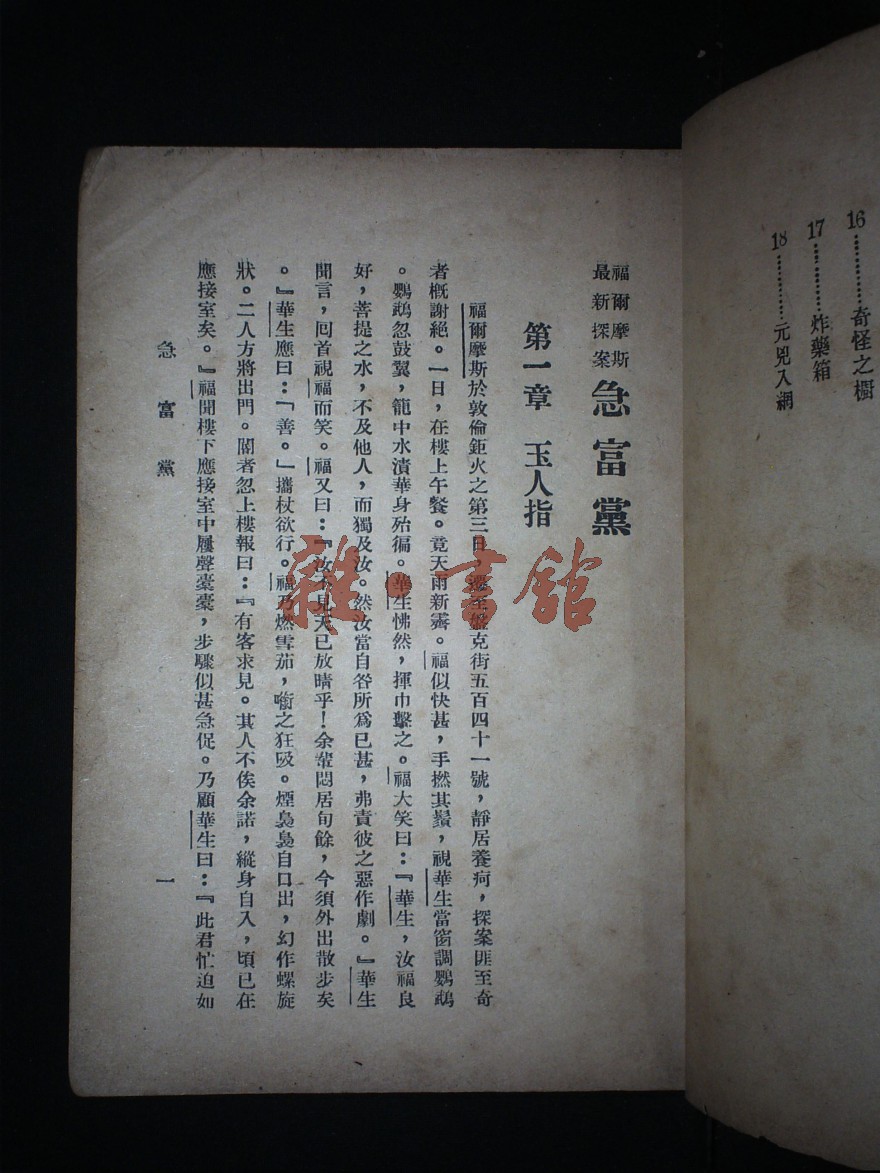 16…………奇怪之櫥
17…………炸藥箱
18…………元兇入網
福爾摩斯
最新探案
急富黨
第一章 玉人指
福爾摩斯於敦倫鉅火之第三日,遷至盤克街五百四十一號,靜居養疴,探案匪至奇
者概謝絕。一日,在樓上午餐。竟天雨新霽。福似快甚,手撚其鬚,視華生當窗調鸚鵡
。鸚鵡忽鼓翼,籠中水漬華身殆徧。華生怫然,揮巾擊之。福大笑曰:『華生,汝福良
好,菩提之水,不及他人,而獨及汝。然汝當自咎所爲已甚,弗責彼之惡作劇。』華生
聞言,回首視福而笑。福又曰:『汝不見天已放晴乎!余輩悶居旬餘,今須外出散步矣
。』華生應曰:「善。」攜杖欲行。福乃燃雪茄,啣之狂吸。煙裊裊自口出,幻作螺旋
狀。二人方將出門。閽者忽上樓報曰:『有客求見。其人不俟余諾,縱身自入,頃已在
應接室矣。』福聞樓下應接室中屨聲橐橐,步驟似甚急促。乃顧華生曰:『此君忙迫如
急富黨
一
雜·書館